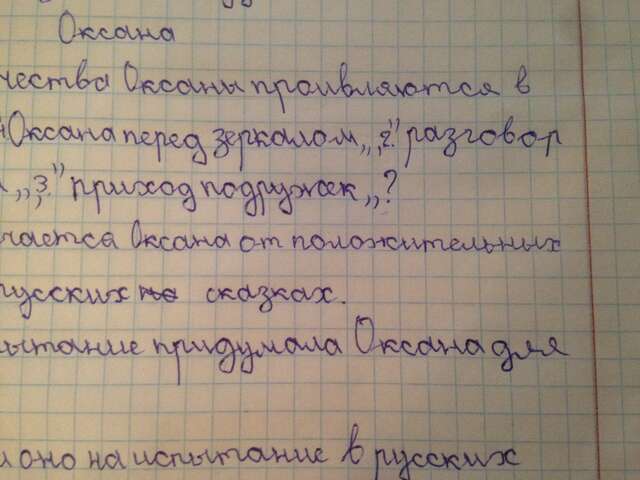 Оксана
чества Оксаны проявляются в
Оксана перед зеркалом", „2." разговор
„3" приход подружек"?
чается Оксана от положительных
русских сказках.
ытание придумала Оксана для
оно на испытание в русских